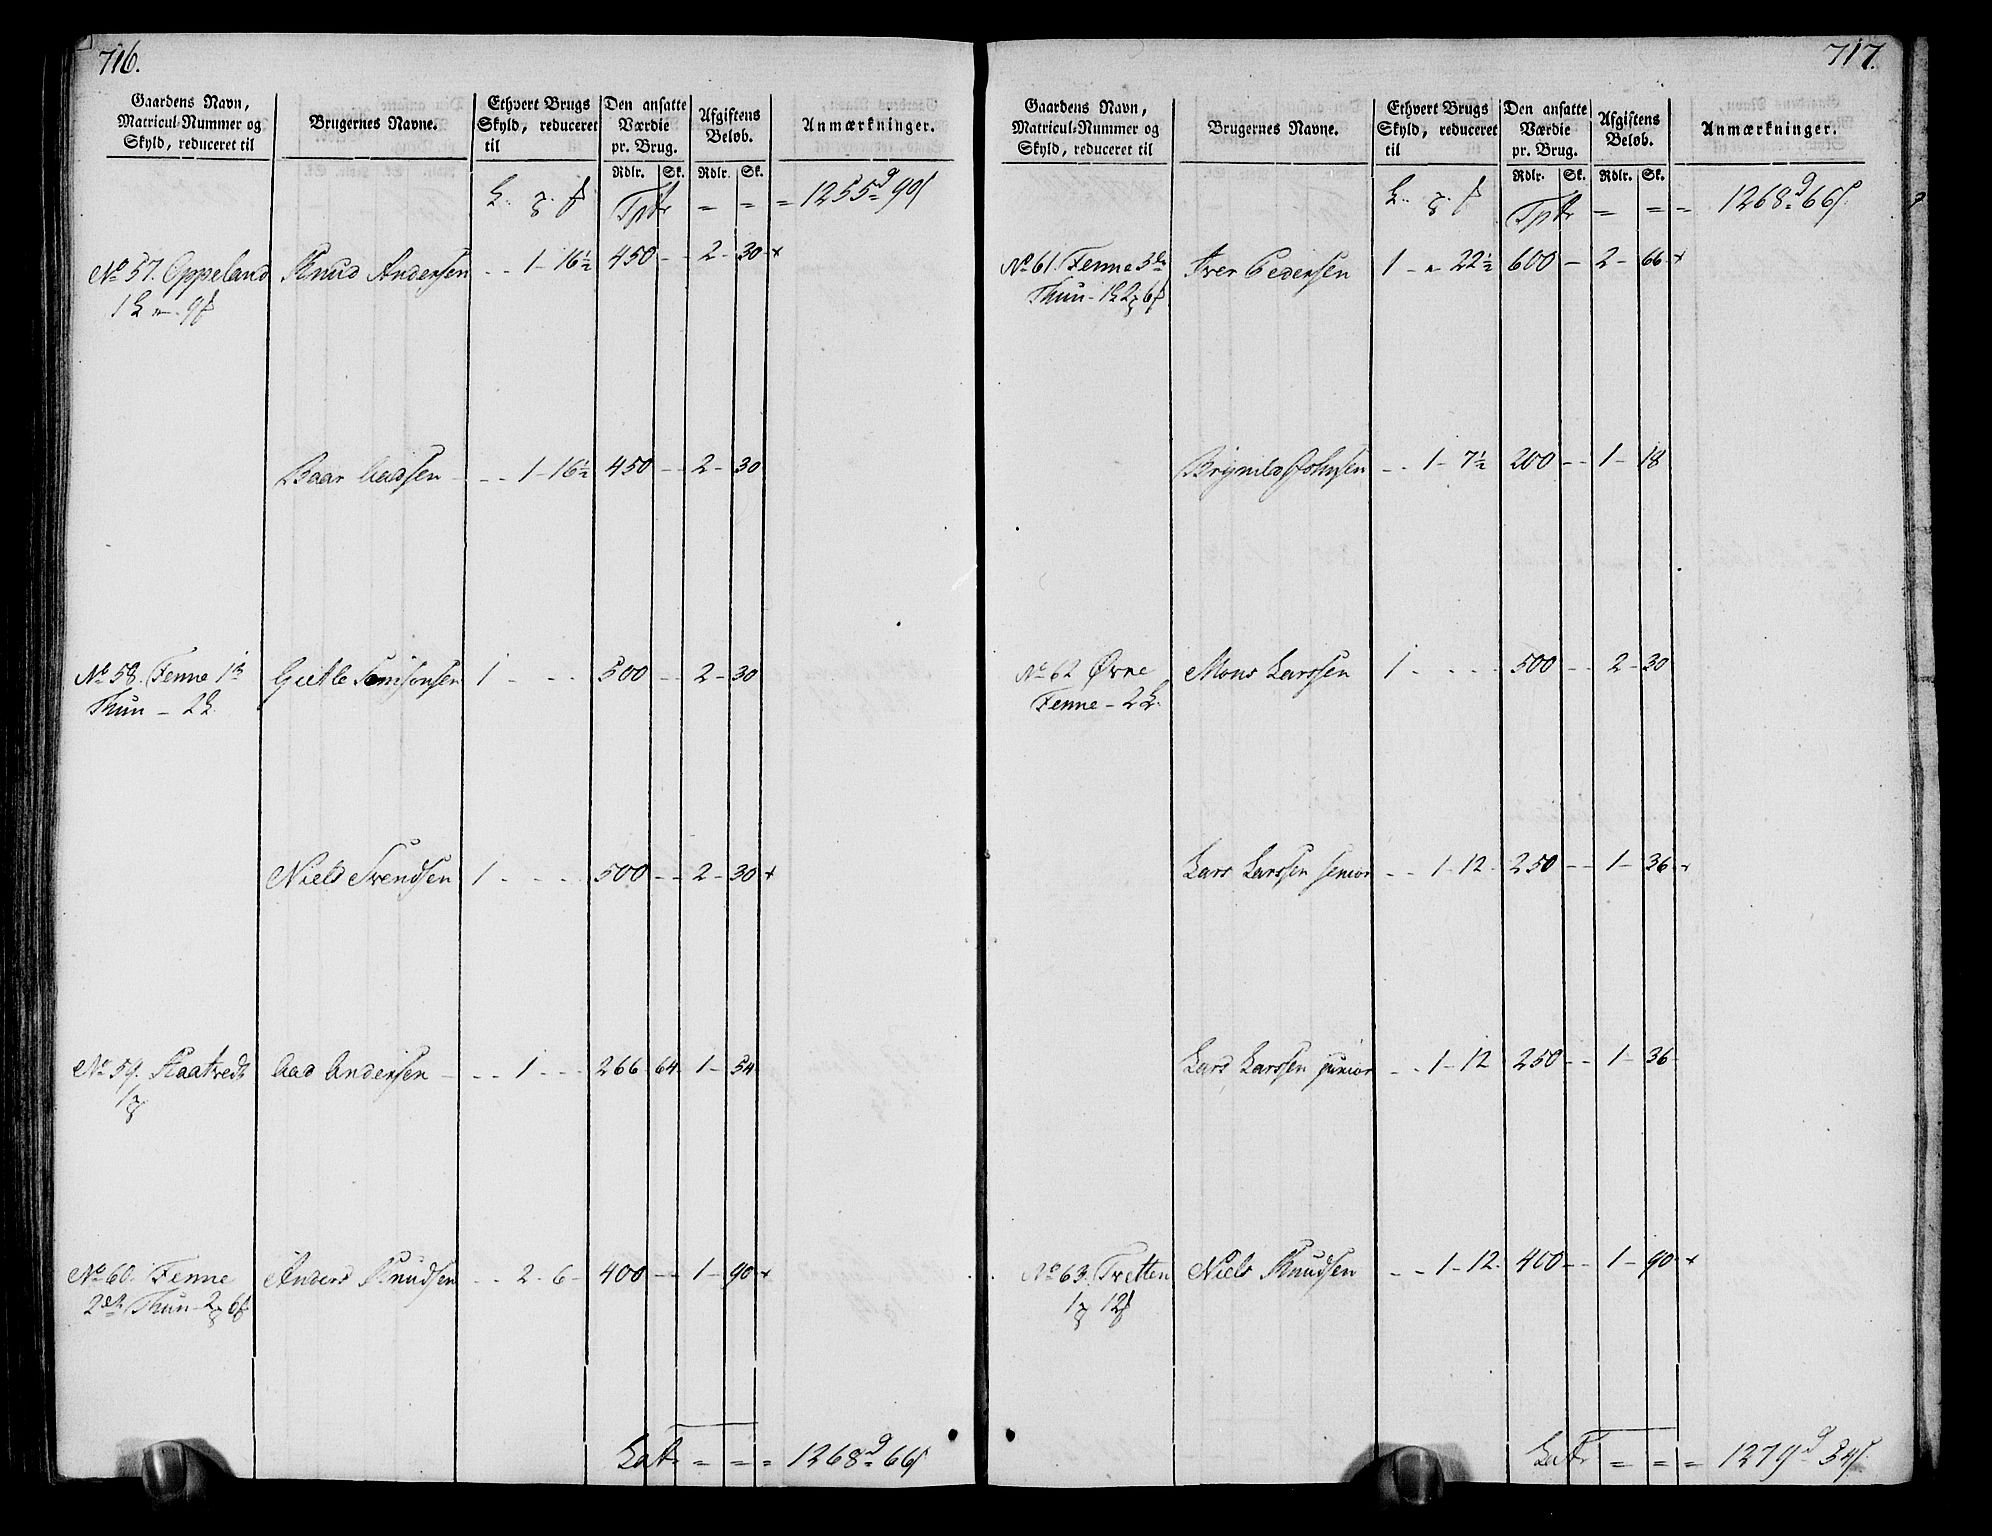 716.
Gaardens Navn, Matricul-Nummer og Skyld, reduceret til
Brugernes Navne.
Ethvert Brugs Skyld, reduceret til
Den ansatte Værdie pr. Brug.
Afgiftens Beløb.
Anmærkninger.
Rdlr. Sk. Rdlr. Sk.
Tptr = = = 1255 d 99 s
No 57. Oppeland Knud Andersen - - 1 - 16½ 450 - - 2 - 30 +
Baar Aadsen - - - 1 - 16½ 450 - - 2 - 30
No 58. Fenne 1ste Gietle Samsonsen 1 - - - 500 - - 2 - 30
Thun - 2
Niels Svendsen 1 - - - 500 - - 2 - 30 +
No 59. Aad Andersen - - - 1 - - - 266 64 1 - 54
No 60. Fenne Anders Knudsen - - 2 - 6 - 400 - - 1 - 90 +
2den Thun - 2 6
Latr = = = 1268 d 66 s
717.
Gaardens Navn, Matricul-Nummer og Skyld, reduceret til
Brugernes Navne.
Ethvert Brugs Skyld, reduceret til
Den ansatte Værdie pr. Brug.
Afgiftens Beløb.
Anmærkninger.
Rdlr. Sk. Rdlr. Sk.
Tptr = = = 1268 d 66 s
No 61. Fenne 3die Iver Pedersen 1 - " - 22½ 600 - 2 - 66 +
Thun - 1 2 6
Brynild Johnsen - - 1 - 7½ 200 - - 1 - 18
No 62 Øvre Mons Larssen 1 - - - 500 - - 2 - 30
Fenne - 2
Lars Larssen senior - - 1 - 12 - 250 - - 1 - 36 +
Lars Larssen junior - - 1 - 12 250 - - 1 - 36
No 63. Tvetten Niels Knudsen - - 1 - 12 - 400 - - 1 - 90 +
1 12
Latr = = = 1279 d 54 s